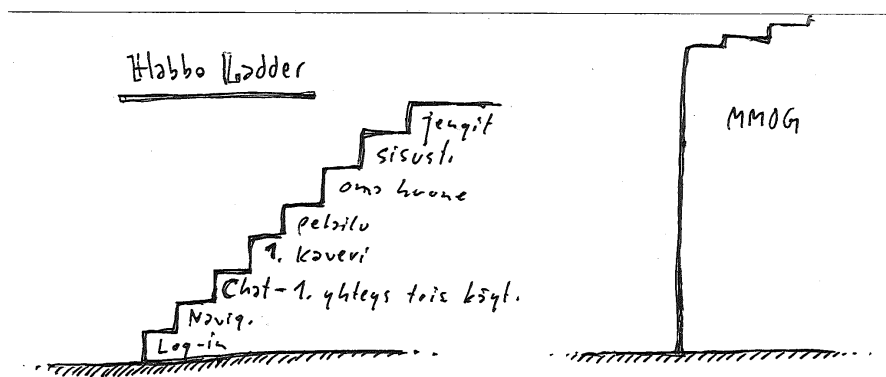 Habbo Ladder
MMOG
jengit
sisust.
oma huone
pelailu
1. kaveri
Chat - 1. yhteys tois käyt.
Navig.
Log-in